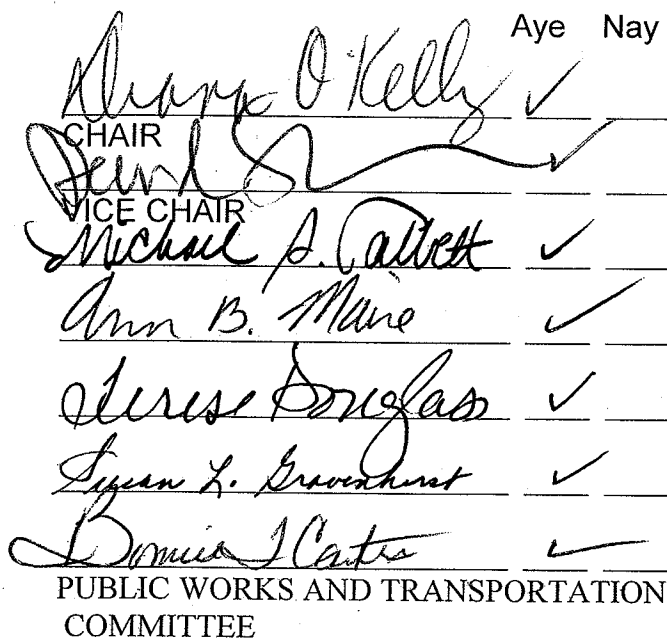 Aye Nay
Diana O'Kelly ✓
CHAIR
✓
VICE CHAIR
Michael S. Talbett ✓
Ann B. Maine ✓
Terese Douglass ✓
Susan L. Gravenhorst ✓
Bonnie T Carter ✓
PUBLIC WORKS AND TRANSPORTATION
COMMITTEE